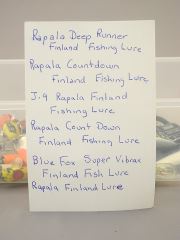 Rapala Deep Runner
Finland Fishing Lure
Rapala Countdown
Finland Fishing Lure
J-9 Rapala Finland
Fishing Lure
Rapala Count Down
Finland Fishing Lure
Blue Fox Super Vibrax
Finland Fish Lure
Rapala Finland Lure